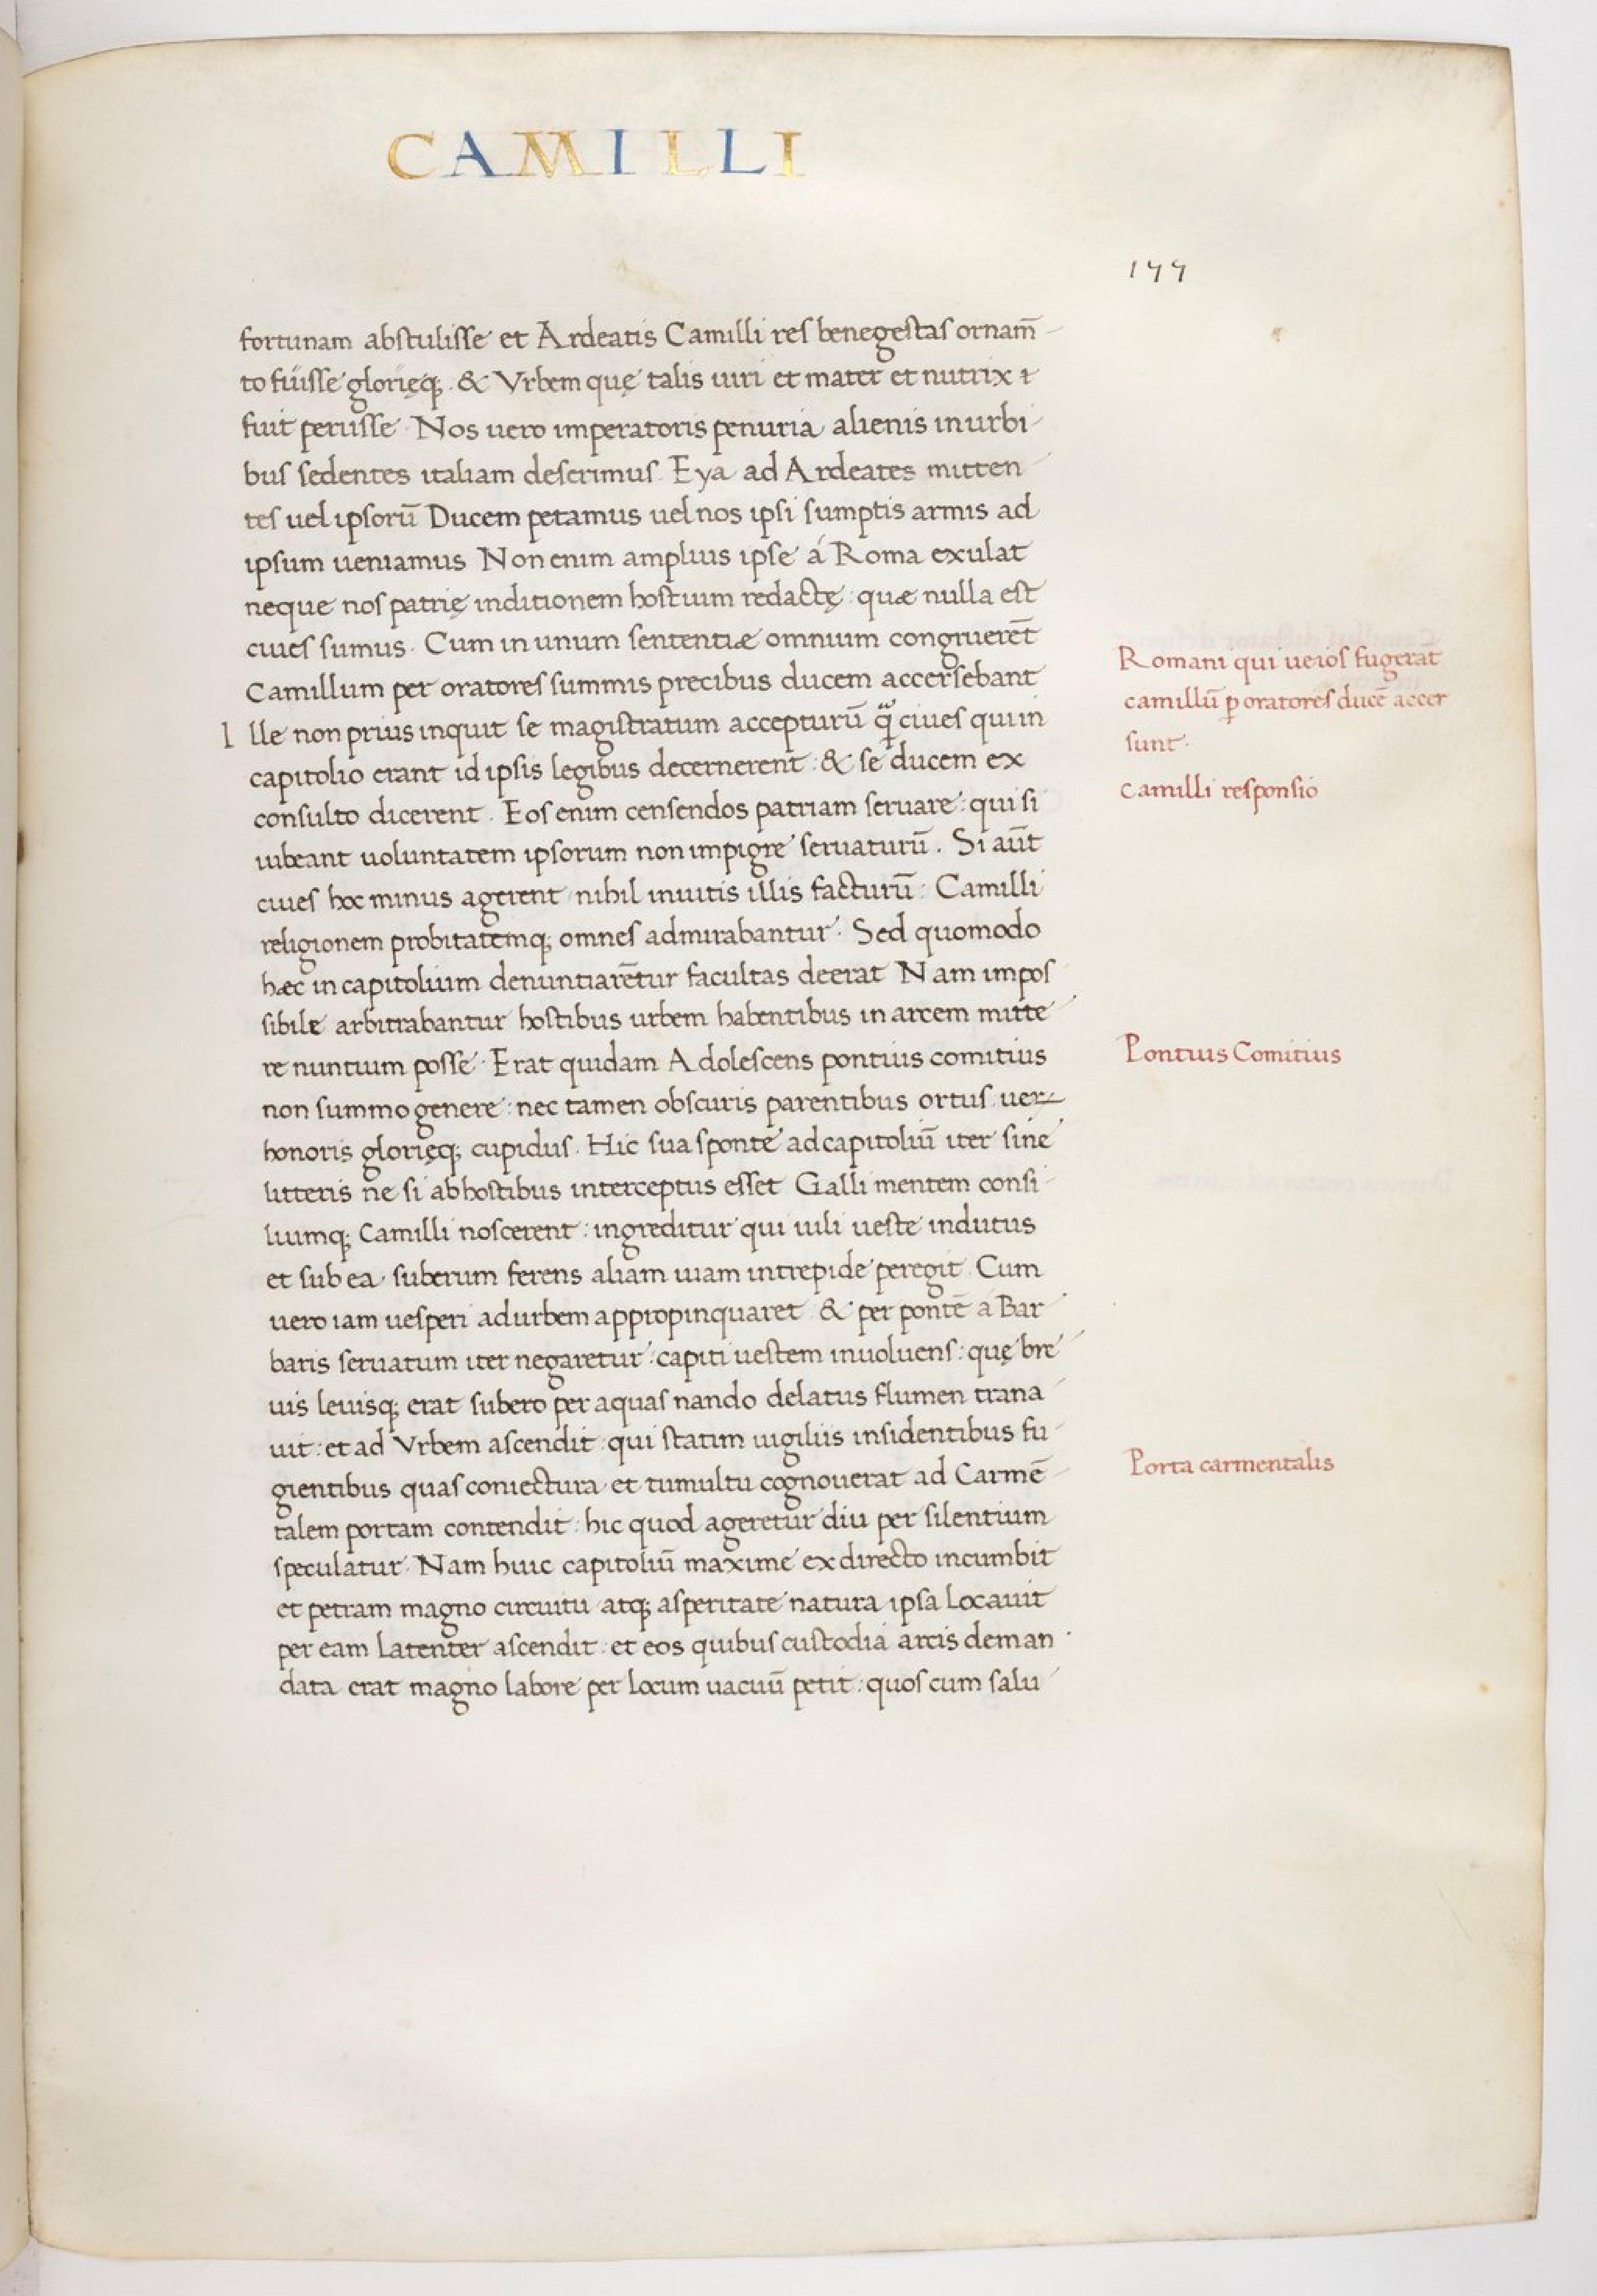 CAMILLI
199
fortunam abstulisse et Ardeatis Camilli res benegestas ornam̄
to fuisse glorięq; & Vrbem quę talis uiri et mater et nutrix
fuit perusse. Nos uero imperatoris penuria alienis in urbi
bus sedentes italiam deserimus. Eya ad Ardeates mitten
tes uel ipsorū Ducem petamus uel nos ipsi sumptis armis ad
ipsum ueniamus Non enim amplius ipse á Roma exulat
neque nos patrię inditionem hostium redactę: quæ nulla est
ciues sumus. Cum in unum sententiæ omnium congruerēt
Camillum per oratores summis precibus ducem accersebant
Ille non prius inquit se magistratum accepturū q̄ ciues qui in
capitolio erant id ipsis legibus decernerent: & se ducem ex
consulto dicerent. Eos enim censendos patriam seruare: qui si
iubeant uoluntatem ipsorum non impigre seruaturū. Si aūt
ciues hoc minus agerent nihil inuitis illis facturū: Camilli
religionem probitatemq; omnes admirabantur. Sed quomodo
hæc in capitolium denuntiarētur facultas deerat Nam impos
sibile arbitrabantur hostibus urbem habentibus in arcem mitte
re nuntium posse. Erat quidam Adolescens pontius comitius
non summo genere: nec tamen obscuris parentibus ortus uer
honoris glorięq; cupidus. Hic sua sponte ad capitoliū iter sine
litteris ne si ab hostibus interceptus esset Galli mentem consi
liumq; Camilli noscerent: ingreditur qui uili ueste indutus
et sub ea suberum ferens aliam uiam intrepide peregit. Cum
uero iam uesperi ad urbem appropinquaret & per pontē a Bar
baris seruatum iter negaretur: capiti uestem inuoluens: quę bre
uis leuisq; erat subero per aquas nando delatus flumen trana
uit: et ad Vrbem ascendit: qui statim uigiliis insidentibus fu
gientibus quas coniectura et tumultu cognouerat ad Carmē
talem portam contendit: hic quod ageretur diu per silentium
speculatur. Nam huic capitoliū maxime ex directo incumbit
et petram magno circuitu atq; asperitate natura ipsa Locauit
per eam Latenter ascendit: et eos quibus custodia arcis deman
data erat magno labore per locum uacuū petit: quos cum salu
Romani qui ueios fugerāt
camillū ꝑ oratores ducē accer
sunt.
camilli responsio
Pontius Comitius
Porta carmentalis